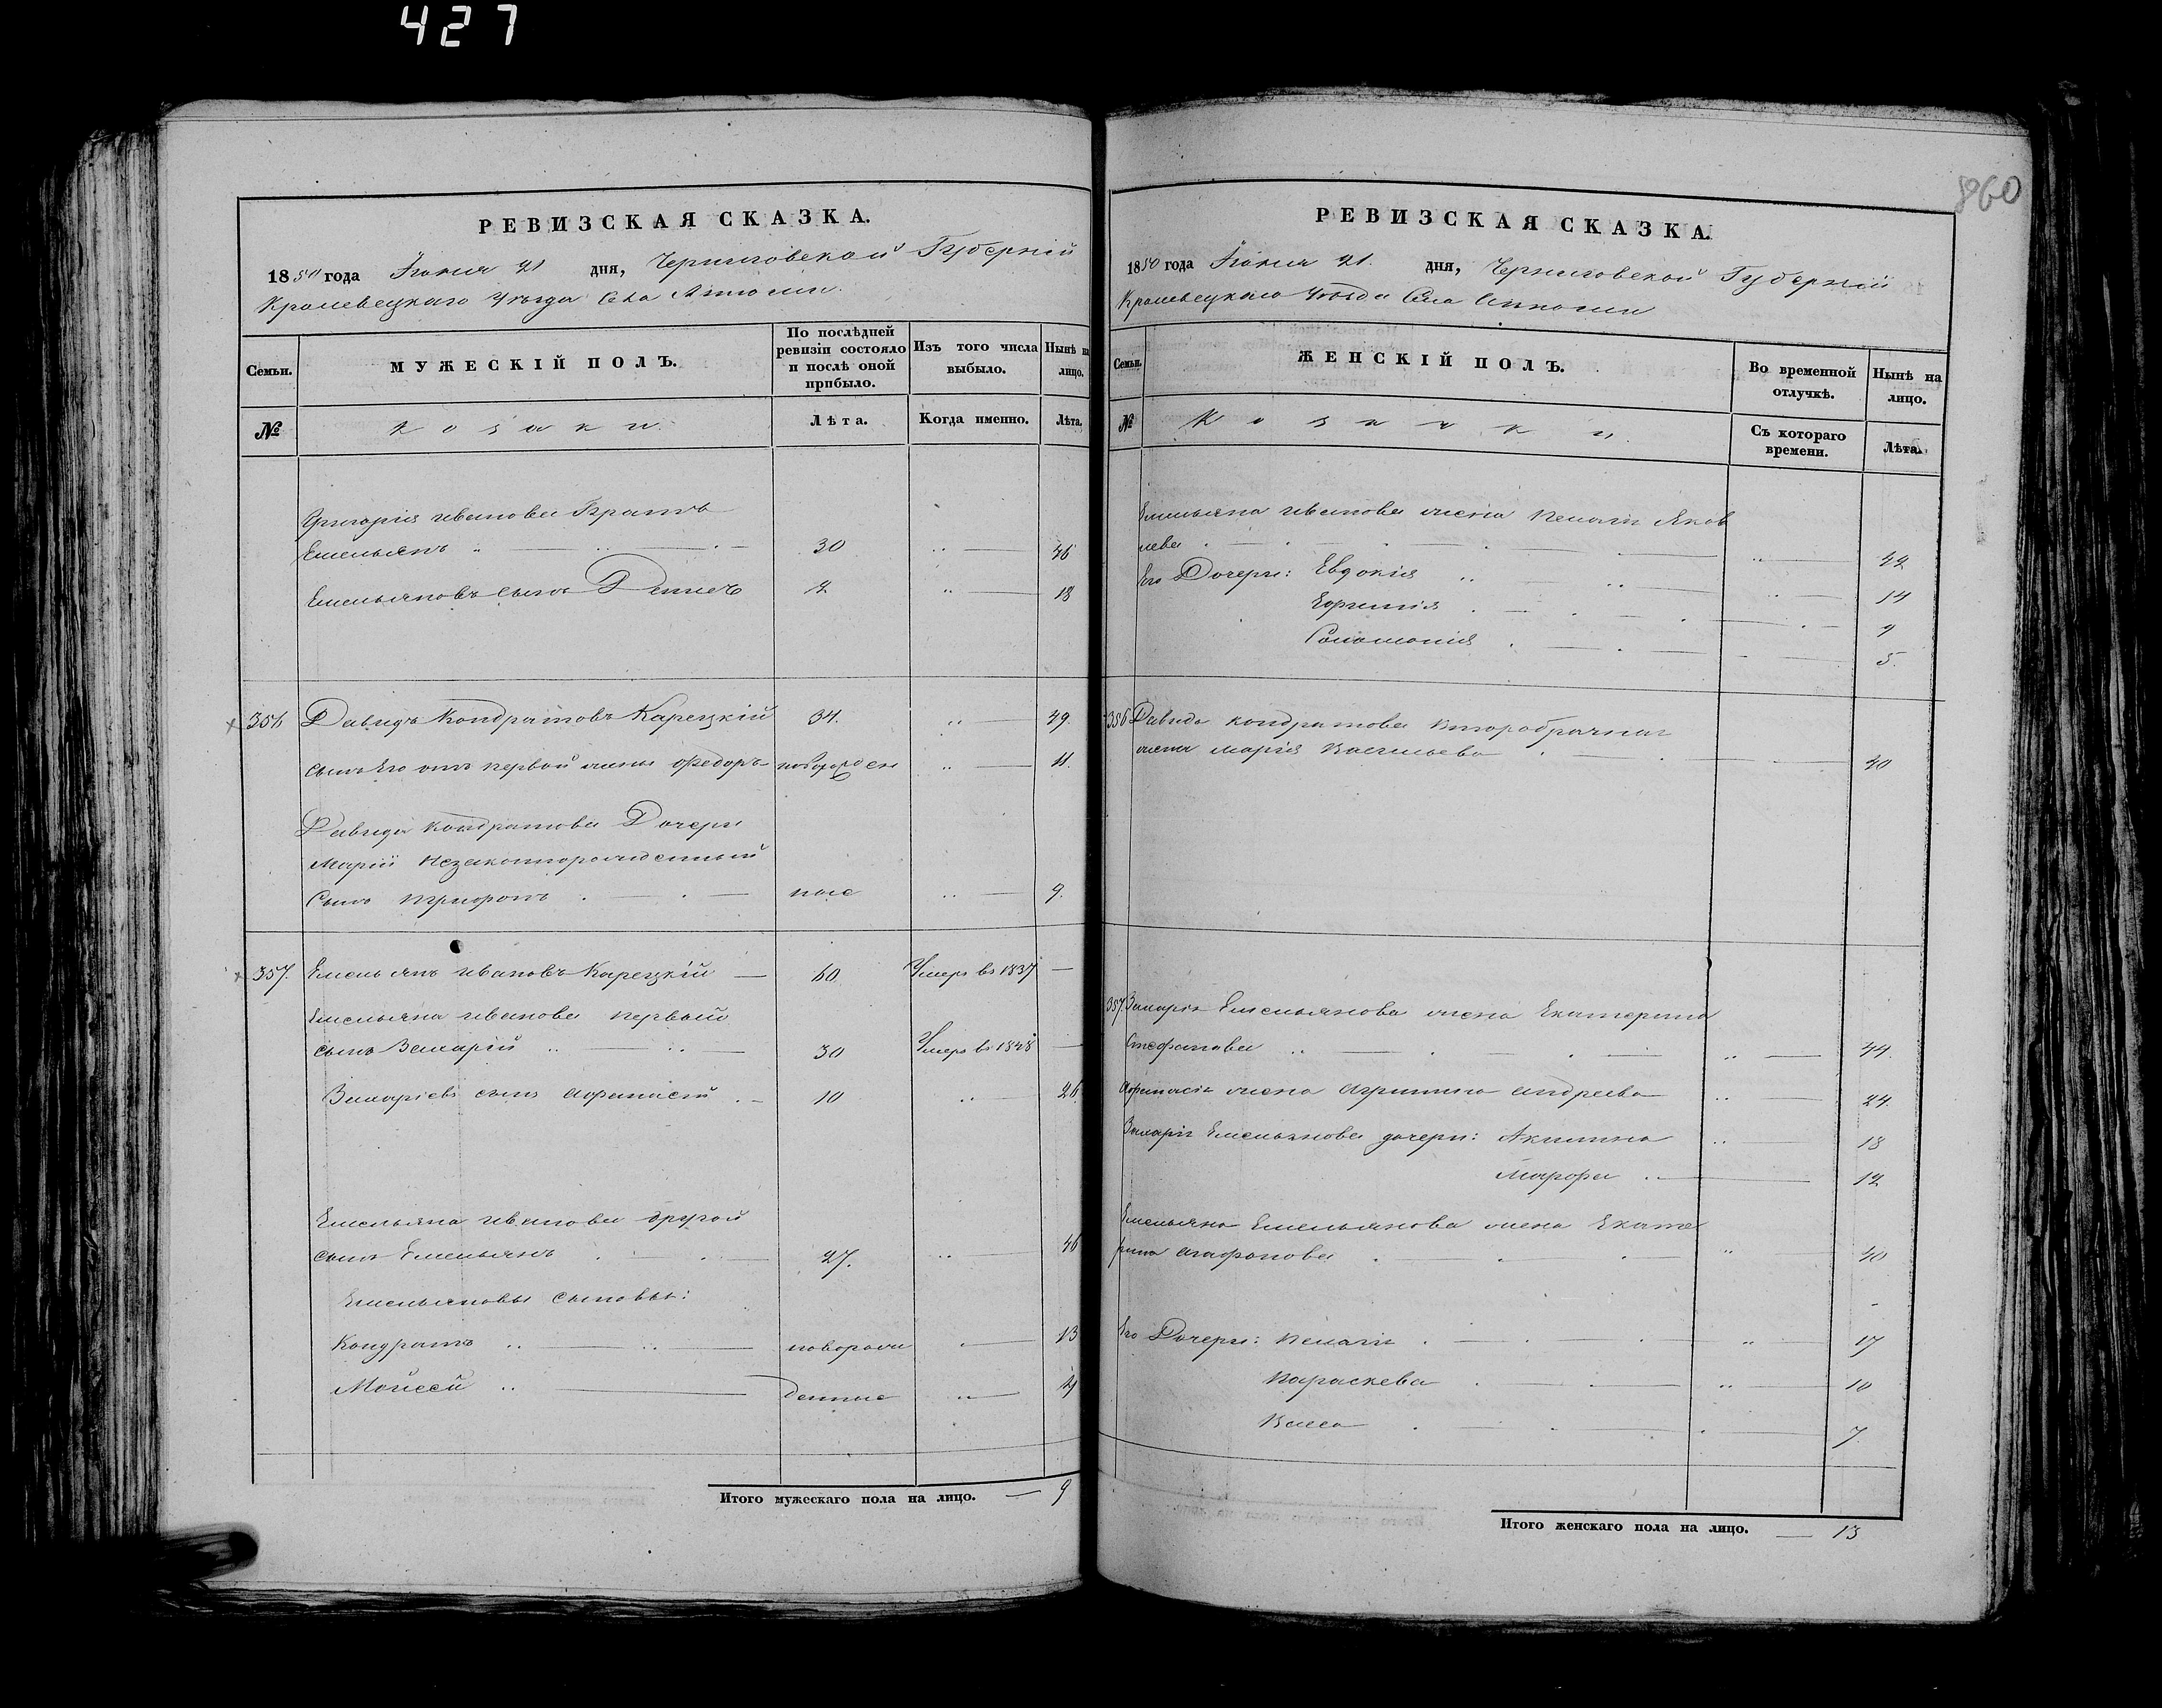 427
860
РЕВИЗСКАЯ СКАЗКА.
1850 года Іюня 21 дня, Черниговской Губерніи
Кролевецкаго Уѣзда Села
Семьи.
МУЖЕСКІЙ ПОЛЪ.
По послѣдней ревизіи состояло и послѣ оной прибыло.
Изъ того числа выбыло.
Нынѣ на лицо.
№
Козаки
Лѣта.
Когда именно.
Лѣта.
Григорія Иванова Братъ
Емельянъ 30 46
Емельяновъ сынъ 2 18
356 Давидъ Кондратовъ Карецкій 34. 49.
сынъ Его отъ первой жены Федоръ новорожден 11.
Давида Кондратова Дочери
Маріи Незаконнорожденный
Сынъ Трифонъ 9.
357. Емельянъ Ивановъ Карецкій 60 Умеръ въ 1837
Емельяна Иванова первый
сынъ Захарій 30 Умеръ въ 1848
Захаріевъ сынъ Афанасій 10 26
Емельяна Иванова другой
сынъ Емельянъ 27. 46
Емельяновы сыновья:
Кондратъ новорож 13
Мойсей денные 4
Итого мужескаго пола на лицо. 9
РЕВИЗСКАЯ СКАЗКА.
1850 года Іюня 21. дня, Черниговской Губерніи
Кролевецкаго Уѣзда Села
Семьи.
ЖЕНСКІЙ ПОЛЪ.
Во временной отлучкѣ.
Нынѣ на лицо.
№
Козачки
Съ котораго времени.
Лѣта.
Емельяна Иванова жена Пелагія Яков
лева 42
Его Дочери: Евдокія 14
Ефимія 9
Соломонія 5.
356 Давида Кондратова второбрачная
жена Марія Васильева 40
357. Захарія Емельянова жена Екатерина
Стефанова 44.
Афанасія жена Агрипина Андреева 24.
Захарія Емельянова дочери: Акилина 18
Марфа 12
Емельяна Емельянова жена Екате
рина Агафонова 40
Его Дочери: Пелагія 17
Параскева 10
Васса 7.
Итого женскаго пола на лицо. 13